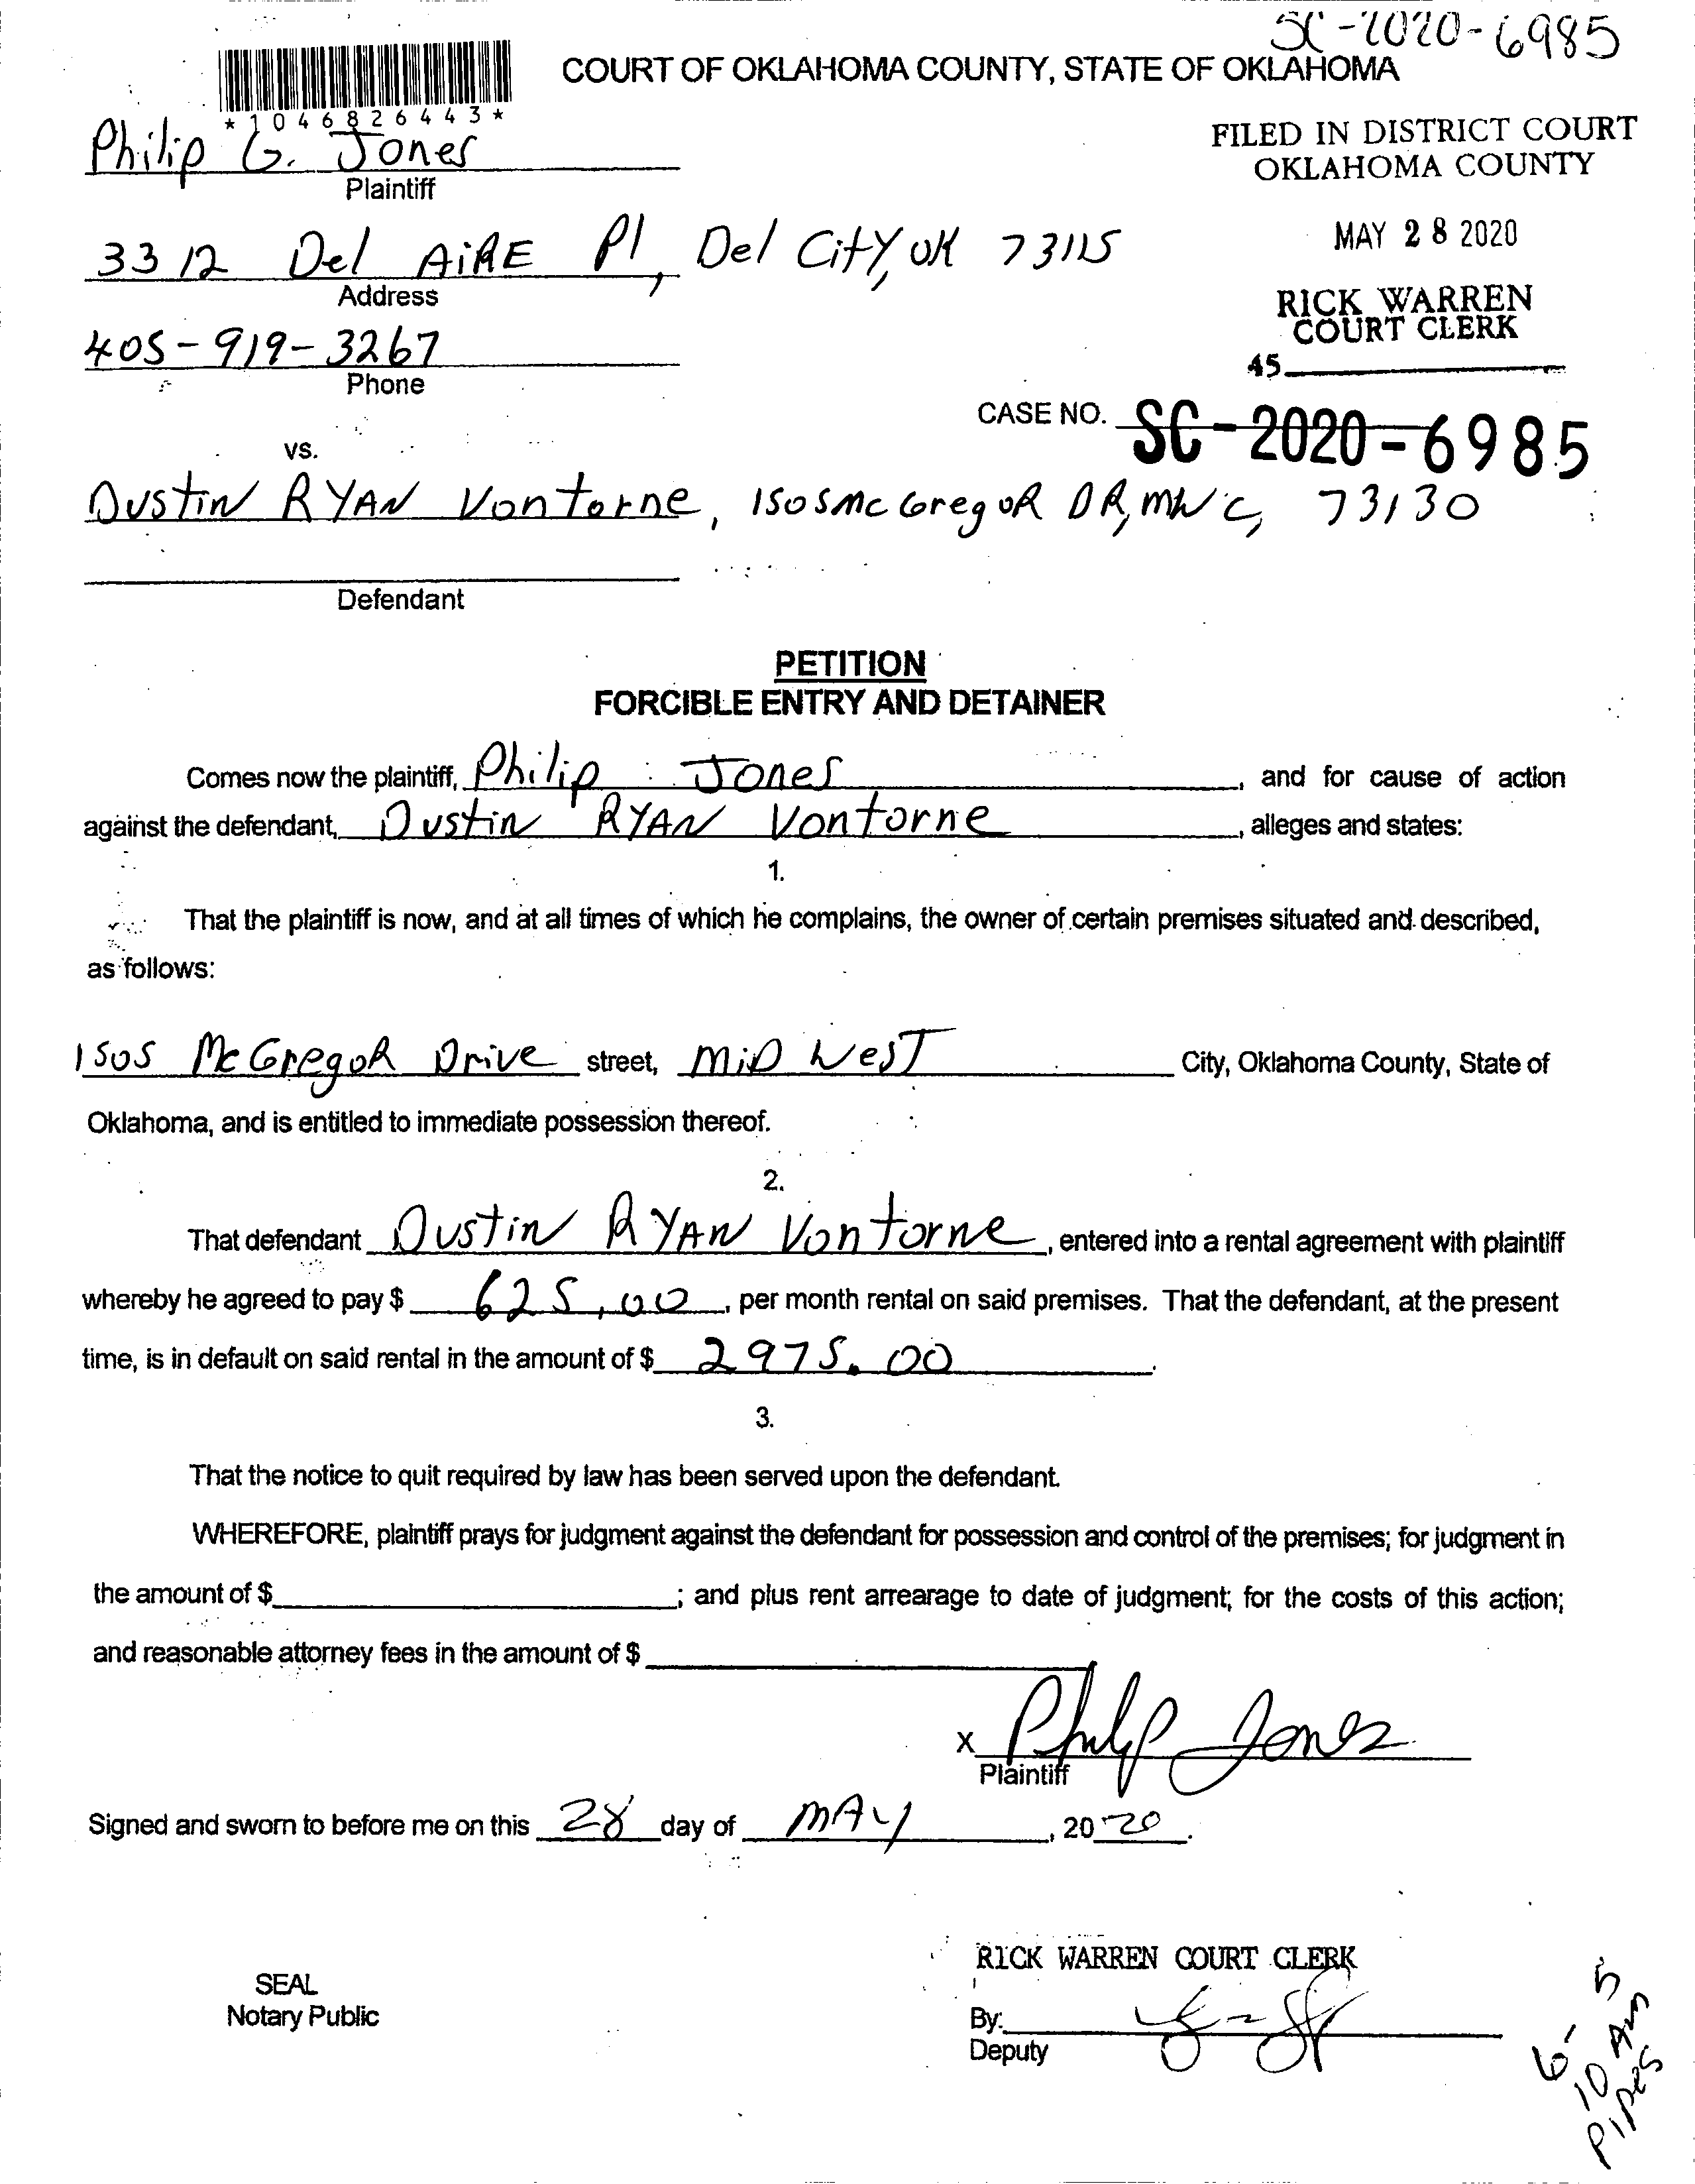 SC-2020-6985
COURT OF OKLAHOMA COUNTY, STATE OF OKLAHOMA
*1046826443*
FILED IN DISTRICT COURT
OKLAHOMA COUNTY
Philip G. Jones
Plaintiff
MAY 28 2020
3312 Del AiRE Pl, Del City, OK 73115
Address
RICK WARREN
COURT CLERK
405-919-3267
Phone
45
CASE NO. SC-2020-6985
vs.
Dustin RYAN Vontorne, 1505 McGregoR DR, MWC, 73130
Defendant
PETITION
FORCIBLE ENTRY AND DETAINER
Comes now the plaintiff, Philip Jones, and for cause of action
against the defendant, Dustin RYAN Vontorne, alleges and states:
1.
That the plaintiff is now, and at all times of which he complains, the owner of certain premises situated and described,
as follows:
1505 McGregoR Drive street, MiD West City, Oklahoma County, State of
Oklahoma, and is entitled to immediate possession thereof.
2.
That defendant Dustin RYAN Vontorne, entered into a rental agreement with plaintiff
whereby he agreed to pay $ 625.00, per month rental on said premises. That the defendant, at the present
time, is in default on said rental in the amount of $ 2975.00.
3.
That the notice to quit required by law has been served upon the defendant.
WHEREFORE, plaintiff prays for judgment against the defendant for possession and control of the premises; for judgment in
the amount of $ ; and plus rent arrearage to date of judgment; for the costs of this action;
and reasonable attorney fees in the amount of $
X Philip Jones
Plaintiff
Signed and sworn to before me on this 28 day of MAY, 2020.
RICK WARREN COURT CLERK
SEAL
Notary Public
By:
Deputy
6-5
10 Am
Pipes